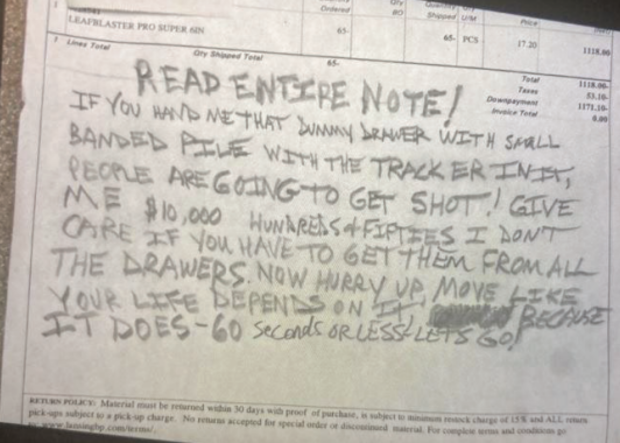 1
Ordered
BO
Shipped U/M
Price
LEAFBLASTER PRO SUPER 6IN
65-
65- PCS
17.20
1118.00
1 Lines Total
Qty Shipped Total
65-
Total
1118.00-
Taxes
53.10-
Downpayment
1171.10-
Invoice Total
0.00
READ ENTIRE NOTE!
IF YOU HAND ME THAT DUMMY DRAWER WITH SMALL
BANDED PILE WITH THE TRACKER IN IT,
PEOPLE ARE GOING TO GET SHOT! GIVE
ME $10,000 HUNDREDS & FIFTIES I DON'T
CARE IF YOU HAVE TO GET THEM FROM ALL
THE DRAWERS. NOW HURRY UP, MOVE LIKE
YOUR LIFE DEPENDS ON IT, BECAUSE
IT DOES-60 seconds OR LESS! LETS GO!
RETURN POLICY: Material must be returned within 30 days with proof of purchase, is subject to minimum restock charge of 15% and ALL return
pick-ups subject to a pick-up charge. No returns accepted for special order or discontinued material. For complete terms and conditions go
www.lansingbp.com/terms/.